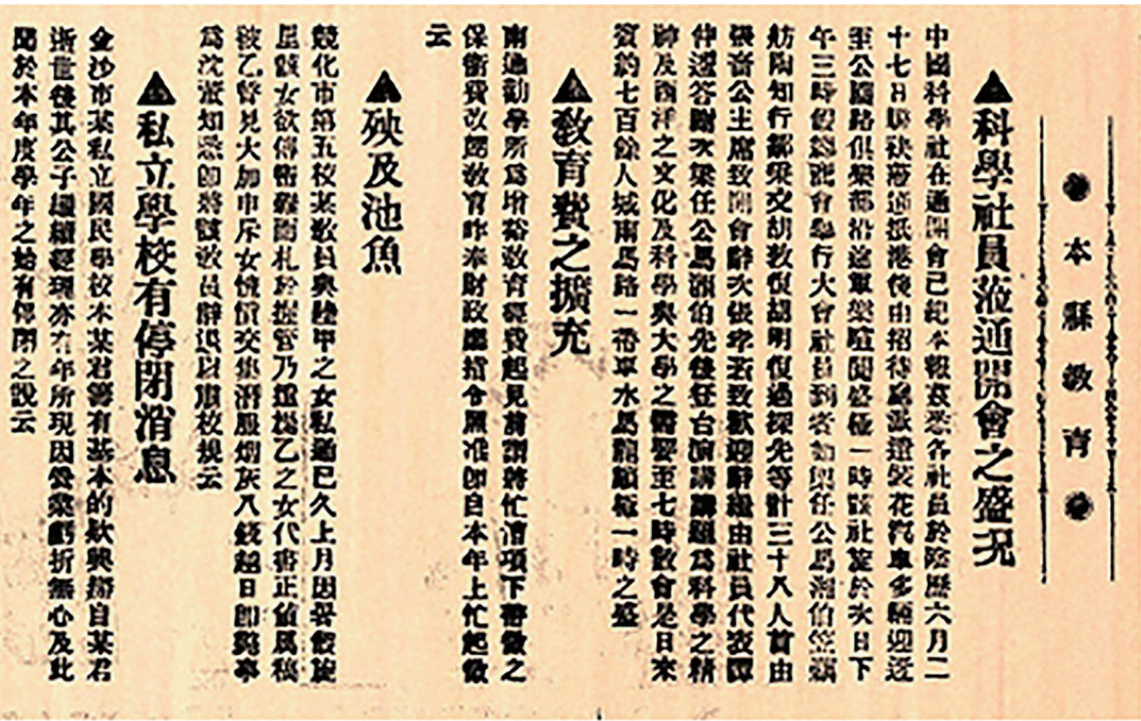 本縣教育
▲科學社員蒞通開會之盛況
中國科學社在通開會已紀本報茲悉各社員於陰歷六月二
十七日聯袂蒞通抵港後由招待處派遣裝花汽車多輛迎迓
至公園路俱樂部沿途軍樂喧闐盛極一時該社於次日下
午三時假總商會舉行大會社員到者如梁任公馬湘伯
舫陶知行鄒秉文胡敦復胡明復過探先等計三十八人首由
張嗇公主席致開會辭次張孝若致歡迎辭繼由社員代表譚
仲逵答謝次梁任公馬湘伯先後登台演講講題爲科學之精
神及西洋之文化及科學與大學之需要至七時散會是日來
賓約七百餘人城南馬路一帶車水馬龍頗極一時之盛
▲教育費之擴充
南通勸學所爲增裕教育經費起見前請將忙漕項下帶徵之
保衛費改爲教育昨奉財政廳指令照准即自本年上忙起徵
云
▲殃及池魚
競化市第五校某教員與陸甲之女私通已久上月因暑假旋
里該女欲傳密札於握管乃乙之女代書正值屬稿
被乙瞥見大加申斥女憤交集潛服烟灰入殮越日即斃事
爲沈董知悉即將該教員辭退以肅校規云
▲私立學校有停閉消息
金沙市某私立國民學校本某君籌有基本的款興辦自某君
逝世後其公子繼續經理亦有年所現因營業虧折無心及此
聞於本年度學年之始有停閉之說云